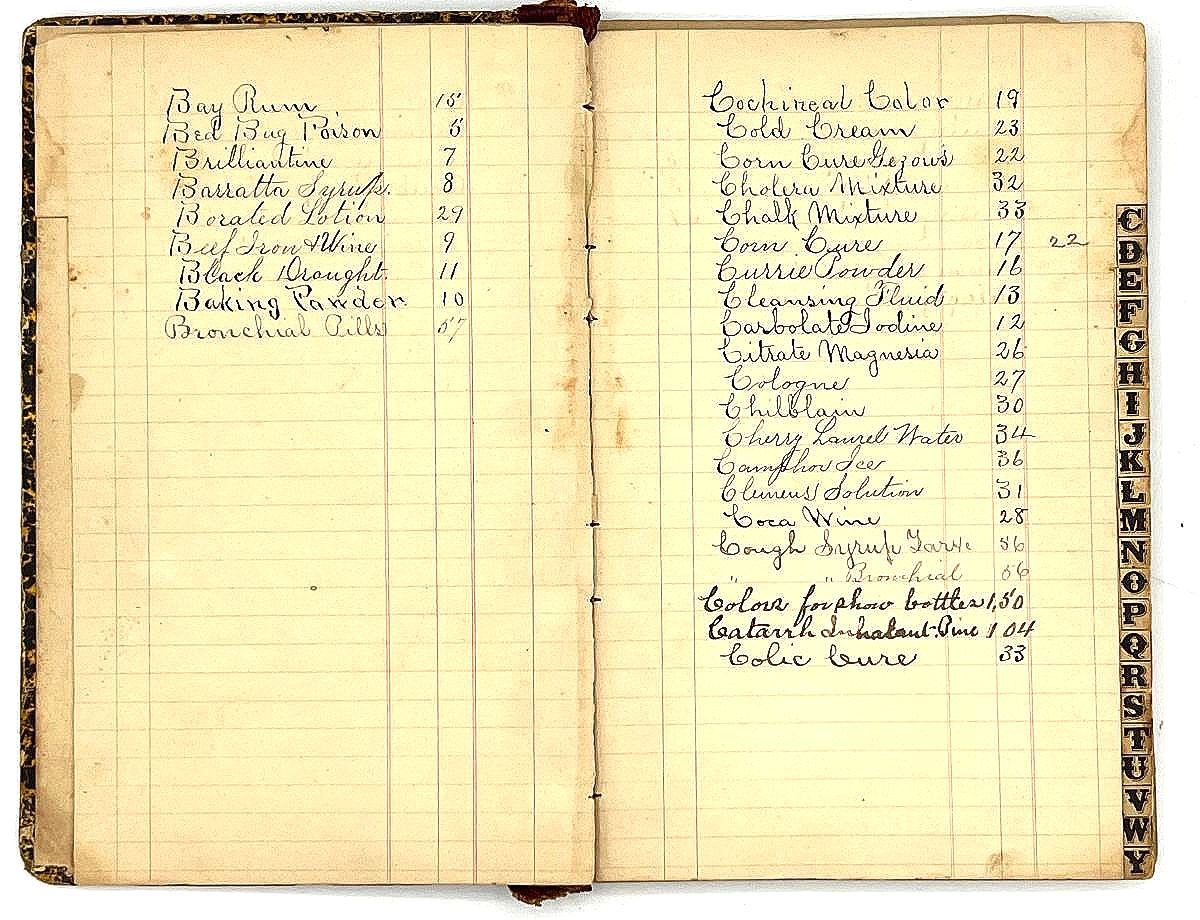 Bay Rum 15
Bed Bug Poison 5
Brilliantine 7
Barratta Syrup. 8
Borated Lotion 29
Beef Iron & Wine 9
Black Draught. 11
Baking Powder 10
Bronchial Pills 57
Cochineal Color 19
Cold Cream 23
Corn Cure Gezows 22
Cholera Mixture 32
Chalk Mixture 33
Corn Cure 17 22
Currie Powder 16
Cleansing Fluid 13
Carbolate Iodine 12
Citrate Magnesia 26
Cologne 27
Chilblain 30
Cherry Laurel Water 34
Camphor Ice 36
Clemens Solution 31
Coca Wine 28
Cough Syrup 56
" " Bronchial 56
Colors for show bottles 1,50
Catarrh Inhalant. Pine 104
Colic Cure 33
C
D
E
F
G
H
I
J
K
L
M
N
O
P
Q
R
S
T
U
V
W
Y